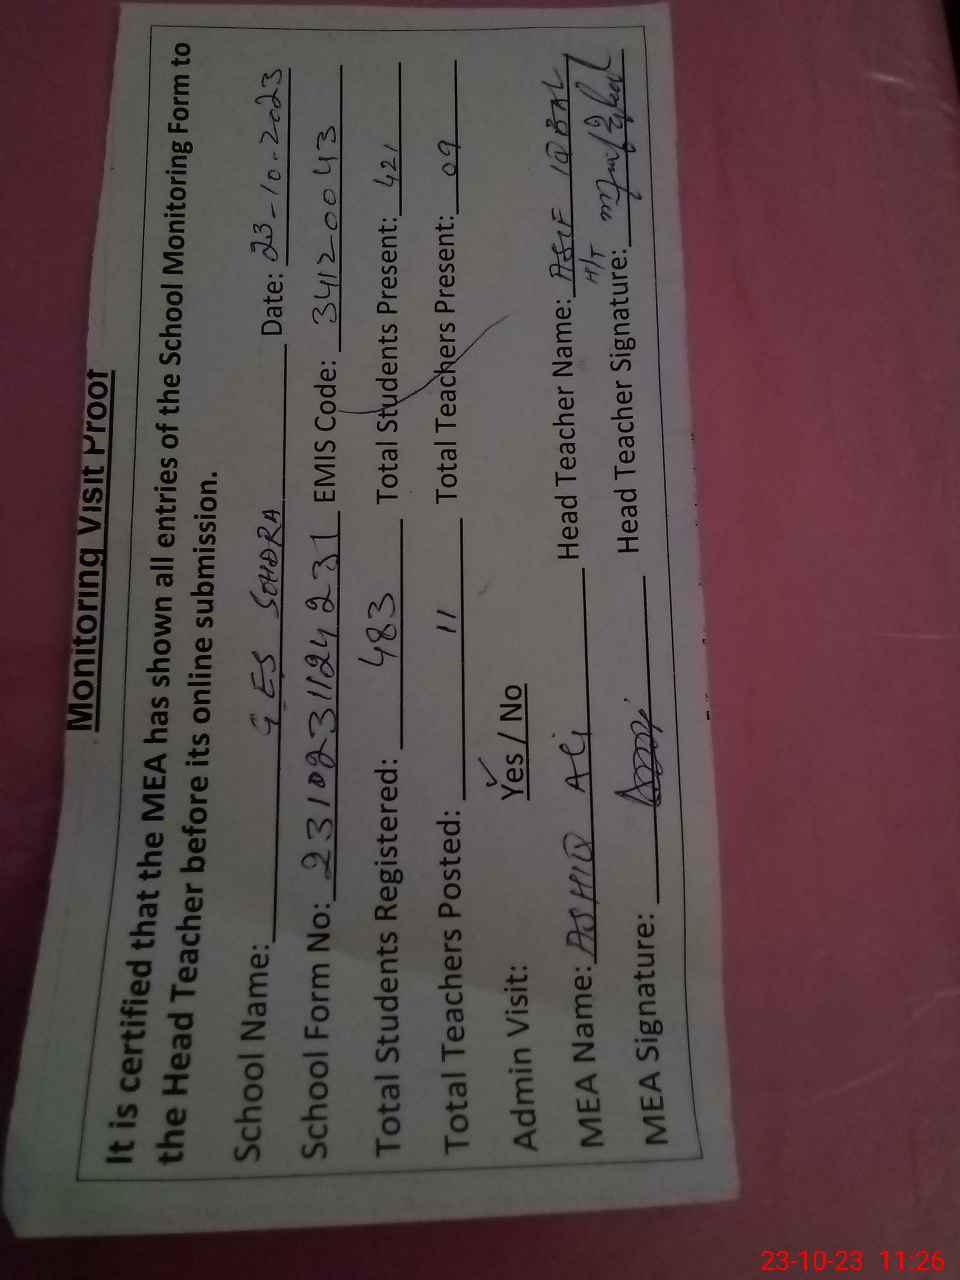 Monitoring Visit Proof
It is certified that the MEA has shown all entries of the School Monitoring Form to
the Head Teacher before its online submission.
School Name: G.ES SOHDRA Date: 23-10-2023
School Form No: 2310231124231 EMIS Code: 34120043
Total Students Registered: 483 Total Students Present: 421
Total Teachers Posted: 11 Total Teachers Present: 09
Admin Visit: Yes / No
MEA Name: ASHIQ ALi Head Teacher Name: ASIF IQBAL
H/T
MEA Signature: Head Teacher Signature:
23-10-23 11:26